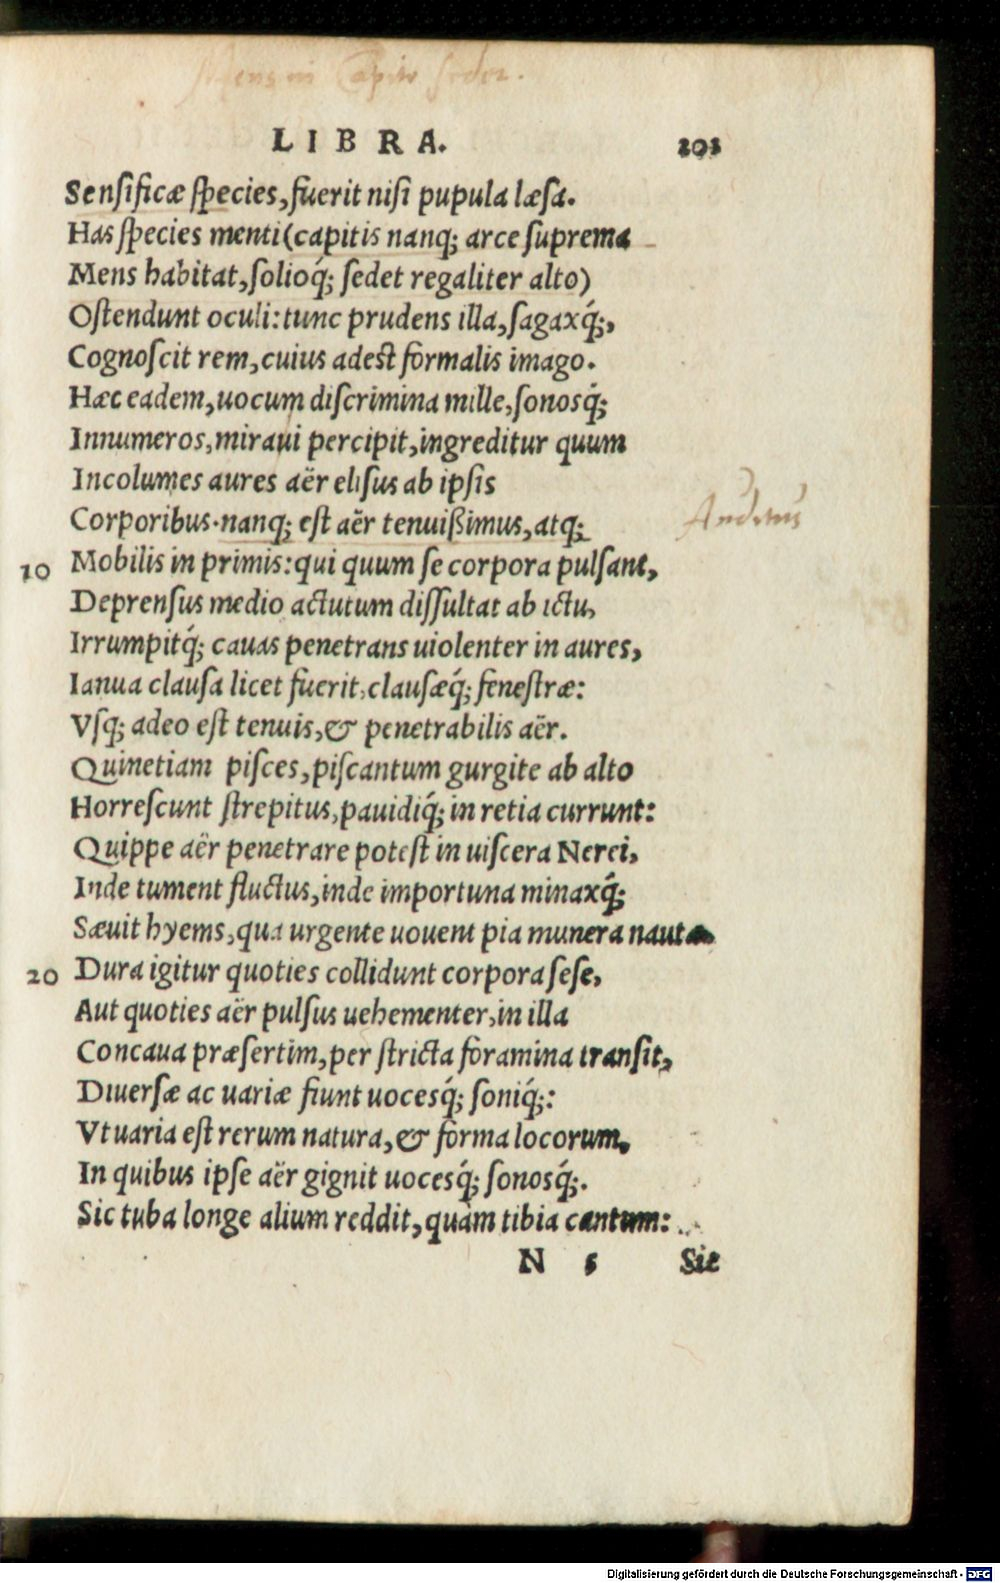 Mens in Capite sedet.
LIBRA. 201
Sensificæ species, fuerit nisi pupula læsa.
Has species menti (capitis nanq; arce suprema
Mens habitat, solioq́; sedet regaliter alto)
Ostendunt oculi: tunc prudens illa, sagaxq́;,
Cognoscit rem, cuius adest formalis imago.
Hæc eadem, uocum discrimina mille, sonosq́;
Innumeros, miraui percipit, ingreditur quum
Incolumes aures aër elisus ab ipsis
Corporibus. nanq; est aër tenuißimus, atq;
Auditus
10 Mobilis in primis: qui quum se corpora pulsant,
Deprensus medio actutum dissultat ab ictu,
Irrumpitq́; cauas penetrans uiolenter in aures,
Ianua clausa licet fuerit, clausæq́; fenestræ:
Vsq; adeo est tenuis, & penetrabilis aër.
Quinetiam pisces, piscantum gurgite ab alto
Horrescunt strepitus, pauidiq́; in retia currunt:
Quippe aër penetrare potest in uiscera Nerei,
Inde tument fluctus, inde importuna minaxq́;
Sæuit hyems, qua urgente uouent pia munera nautæ
20 Dura igitur quoties collidunt corpora sese,
Aut quoties aër pulsus uehementer, in illa
Concaua præsertim, per stricta foramina transit,
Diuersæ ac uariæ fiunt uocesq́; soniq́;:
Vt uaria est rerum natura, & forma locorum,
In quibus ipse aër gignit uocesq́; sonosq́;.
Sic tuba longe alium reddit, quàm tibia cantum:
N 5 Sic
Digitalisierung gefördert durch die Deutsche Forschungsgemeinschaft - DFG